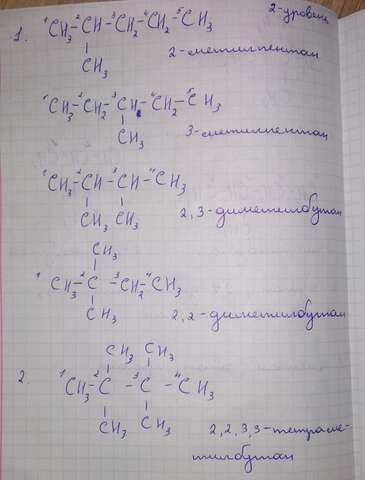 2-уровень
1. ¹CH₃-²CH-³CH₂-⁴CH₂-⁵CH₃
CH₃
2-метилпентан
¹CH₃-²CH₂-³CH-⁴CH₂-⁵CH₃
CH₃
3-метилпентан
¹CH₃-²CH-³CH-⁴CH₃
CH₃ CH₃
2,3-диметилбутан
CH₃
¹CH₃-²C-³CH₂-⁴CH₃
CH₃
2,2-диметилбутан
CH₃ CH₃
2. ¹CH₃-²C-³C-⁴CH₃
CH₃ CH₃
2,2,3,3-тетраме-
тилбутан